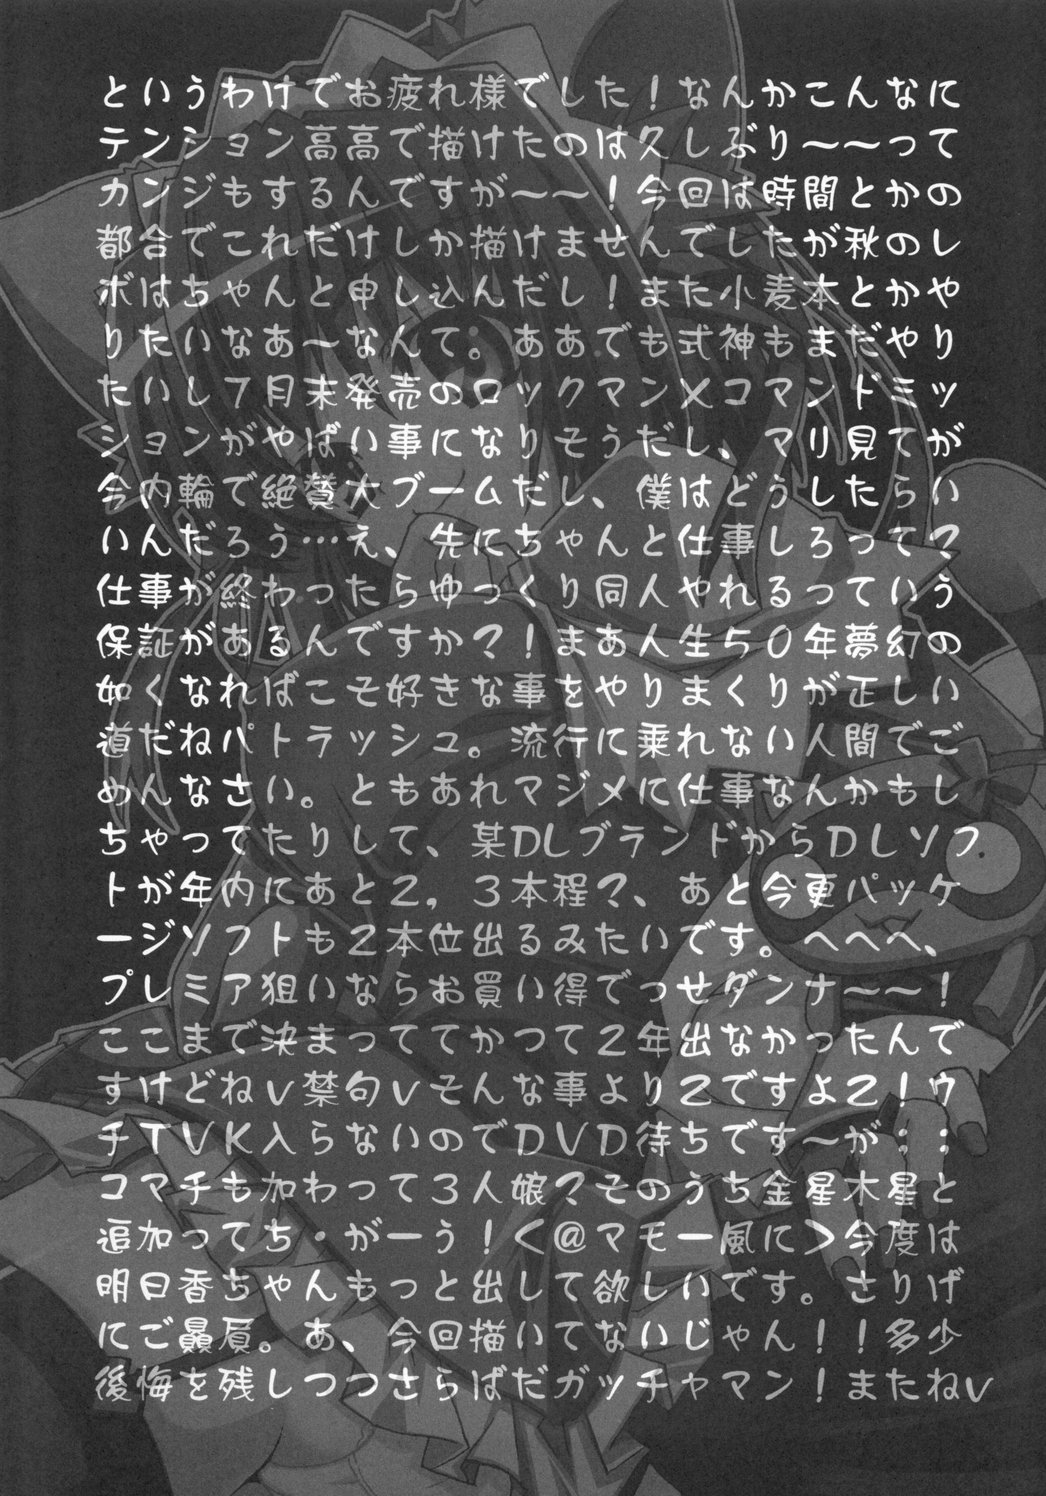 というわけでお疲れ様でした！なんかこんなに
テンション高高で描けたのは久しぶり～～って
カンジもするんですが～～！今回は時間とかの
都合でこれだけしか描けませんでしたが秋のレ
ボはちゃんと申し込んだし！また小麦本とかや
りたいなあ～なんて。ああでも式神もまだやり
たいし７月末発売のロックマンＸコマンドミッ
ションがやばい事になりそうだし、マリ見てが
今内輪で絶賛大ブームだし、僕はどうしたらい
いんだろう…え、先にちゃんと仕事しろって？
仕事が終わったらゆっくり同人やれるっていう
保証があるんですか？！まあ人生５０年夢幻の
如くなればこそ好きな事をやりまくりが正しい
道だねパトラッシュ。流行に乗れない人間でご
めんなさい。ともあれマジメに仕事なんかもし
ちゃってたりして、某ＤＬブランドからＤＬソフ
トが年内にあと２，３本程？、あと今更パッケ
ージソフトも２本位出るみたいです。へへへ、
プレミア狙いならお買い得でっせダンナ～～！
ここまで決まっててかつて２年出なかったんで
すけどねｖ禁句ｖそんな事より２ですよ２！ウ
チＴＶＫ入らないのでＤＶＤ待ちです～が；；
コマチも加わって３人娘？そのうち金星木星と
追加ってち・がーう！＜＠マモー風に＞今度は
明日香ちゃんもっと出して欲しいです。さりげ
にご贔屓。あ、今回描いてないじゃん！！多少
後悔を残しつつさらばだガッチャマン！またねｖ